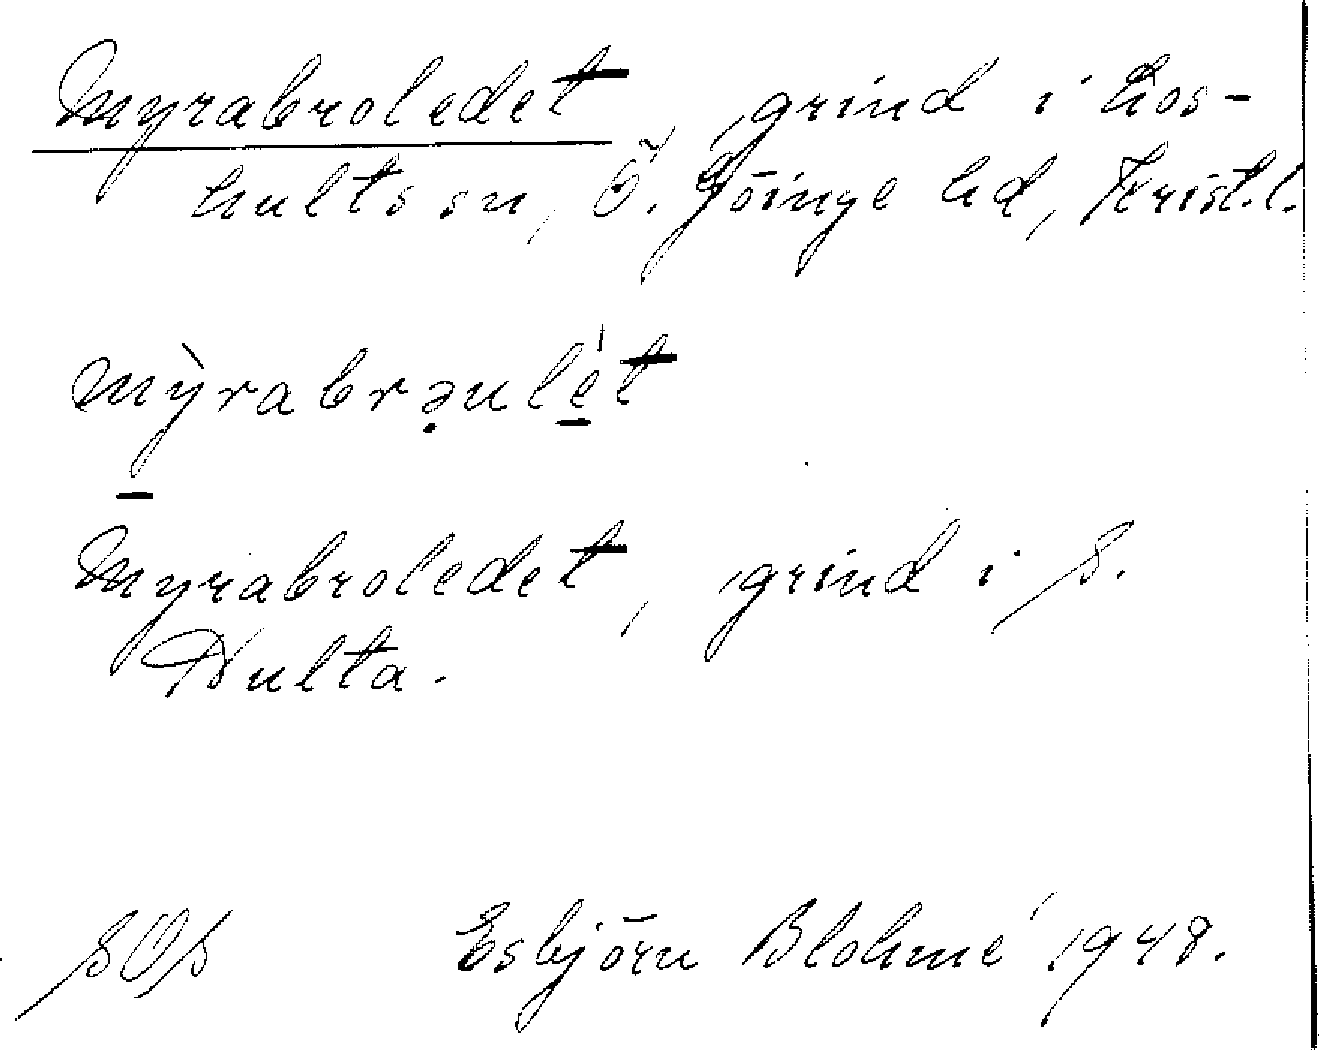 Myrabroledet, grind i Los-
hults sn, Ö. Göinge hd, Krist.l.
mỳrabrə̣ulé̠t
Myrabroledet, grind i S.
Hulta.
SOS Esbjörn Blohmé 1948.